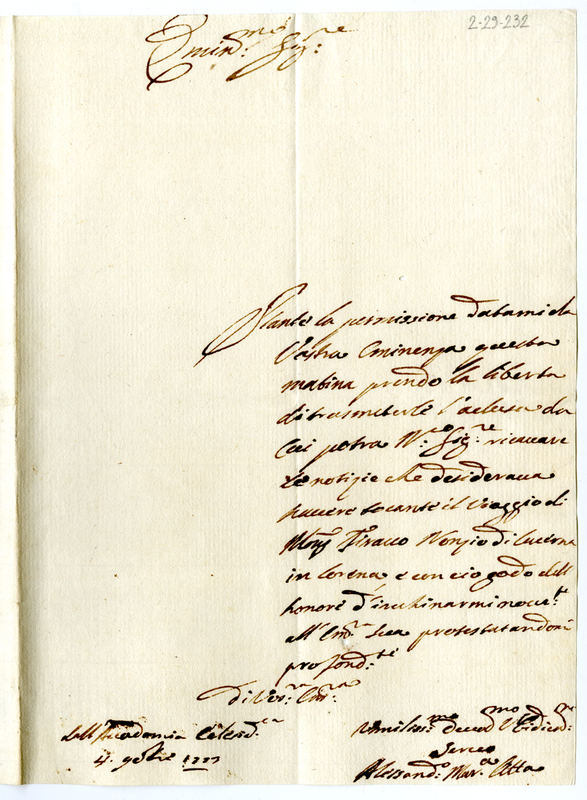 2-29-232
Emin.mo Sig:re
Stante la permissione datami da
Vostra Eminenza questa
matina prendo la libertà
di trasmeterle l'aclusa da
Cui potrà N:ro Sig:re ricavare
le notizie che desiderava
havere tocante il viaggio di
Mons Nonzio di Lucerna
in Lorena e con ciò godo dell
honore d'inchinarmi
all' Em:za Sua protestatandomi
profond:te
di Vos:ra Em:za
Dall'Accademia
4. 9bre
Umiliss:mo Devo:mo Obidien:mo
Servo
Alessand:o Mar:a